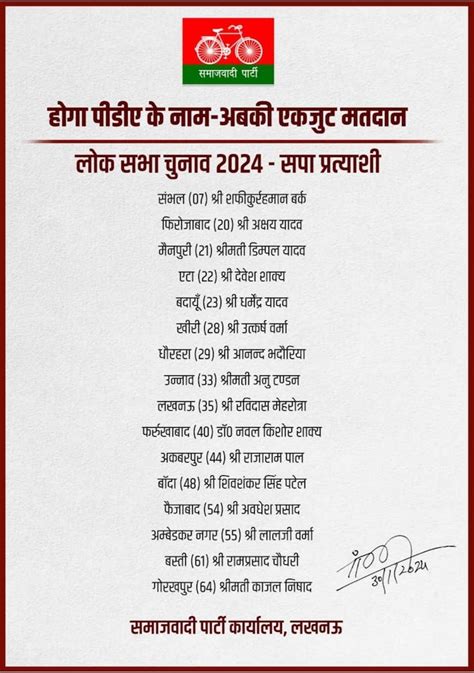 समाजवादी पार्टी
होगा पीडीए के नाम-अबकी एकजुट मतदान
लोक सभा चुनाव 2024 - सपा प्रत्याशी
संभल (07) श्री शफीकुर्रहमान बर्क
फिरोजाबाद (20) श्री अक्षय यादव
मैनपुरी (21) श्रीमती डिम्पल यादव
एटा (22) श्री देवेश शाक्य
बदायूँ (23) श्री धर्मेंद्र यादव
खीरी (28) श्री उत्कर्ष वर्मा
धौरहरा (29) श्री आनन्द भदौरिया
उन्नाव (33) श्रीमती अनु टण्डन
लखनऊ (35) श्री रविदास मेहरोत्रा
फर्रुखाबाद (40) डॉ0 नवल किशोर शाक्य
अकबरपुर (44) श्री राजाराम पाल
बाँदा (48) श्री शिवशंकर सिंह पटेल
फैजाबाद (54) श्री अवधेश प्रसाद
अम्बेडकर नगर (55) श्री लालजी वर्मा
बस्ती (61) श्री रामप्रसाद चौधरी
गोरखपुर (64) श्रीमती काजल निषाद
30/1/2024
समाजवादी पार्टी कार्यालय, लखनऊ